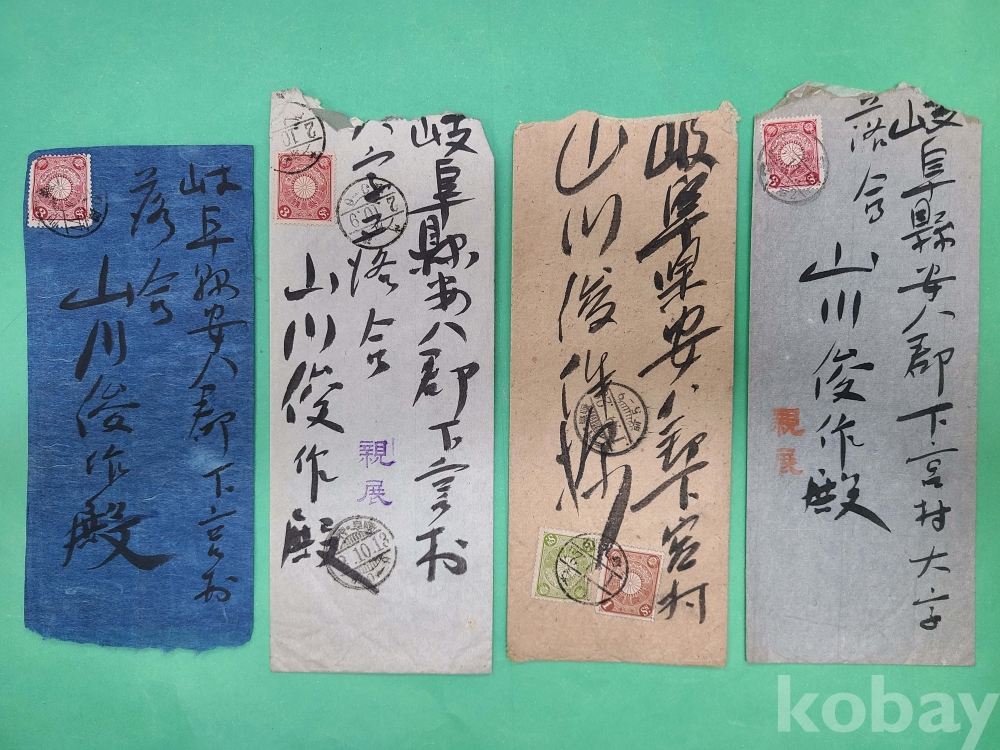 岐阜縣安八郡下宮村
落合
山川俊作殿
岐阜縣安八郡下宮村
大字落合
山川俊作殿
親展
10.13
岐阜県安八郡下宮村
山川俊作様
岐阜縣安八郡下宮村大字
落合
山川俊作殿
親展
kobay